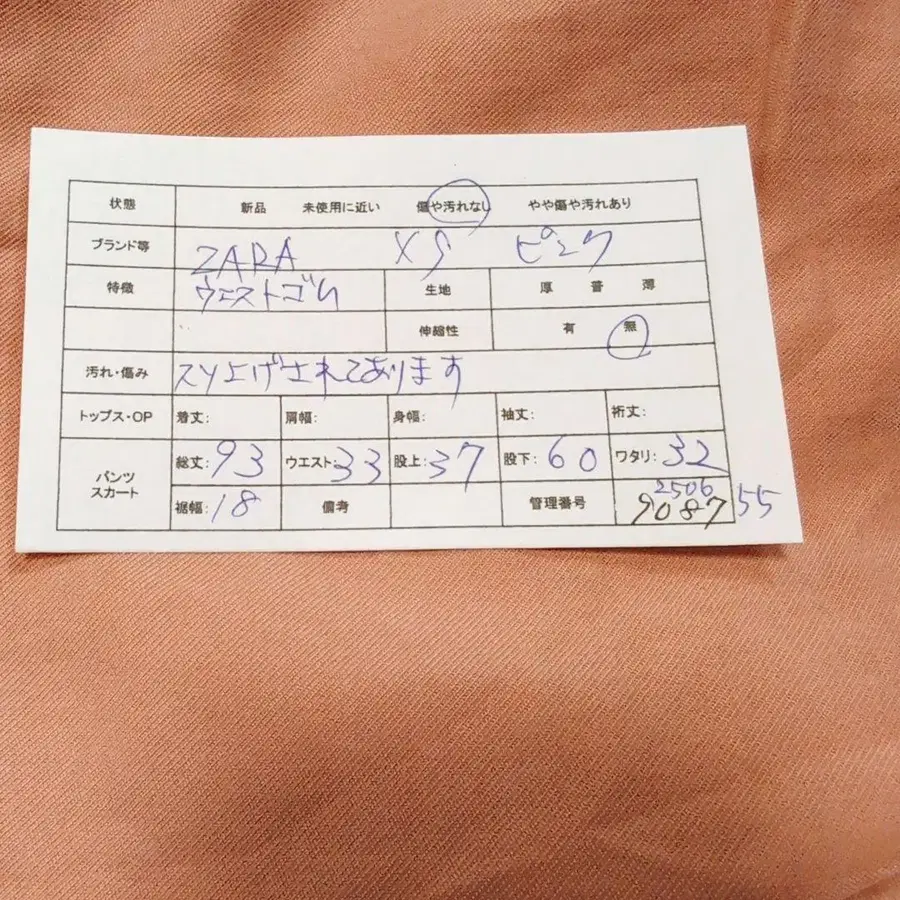 状態 新品 未使用に近い 傷や汚れなし やや傷や汚れあり
ブランド等 ZARA XS ピンク
特徴 ウエストゴム 生地 厚 普 薄
伸縮性 有 無
汚れ・傷み スソ上げされてあります
トップス・OP 着丈: 肩幅: 身幅: 袖丈: 裄丈:
パンツ スカート 総丈:93 ウエスト:33 股上:37 股下:60 ワタリ:32
裾幅:18 備考 管理番号 2506 9087 55